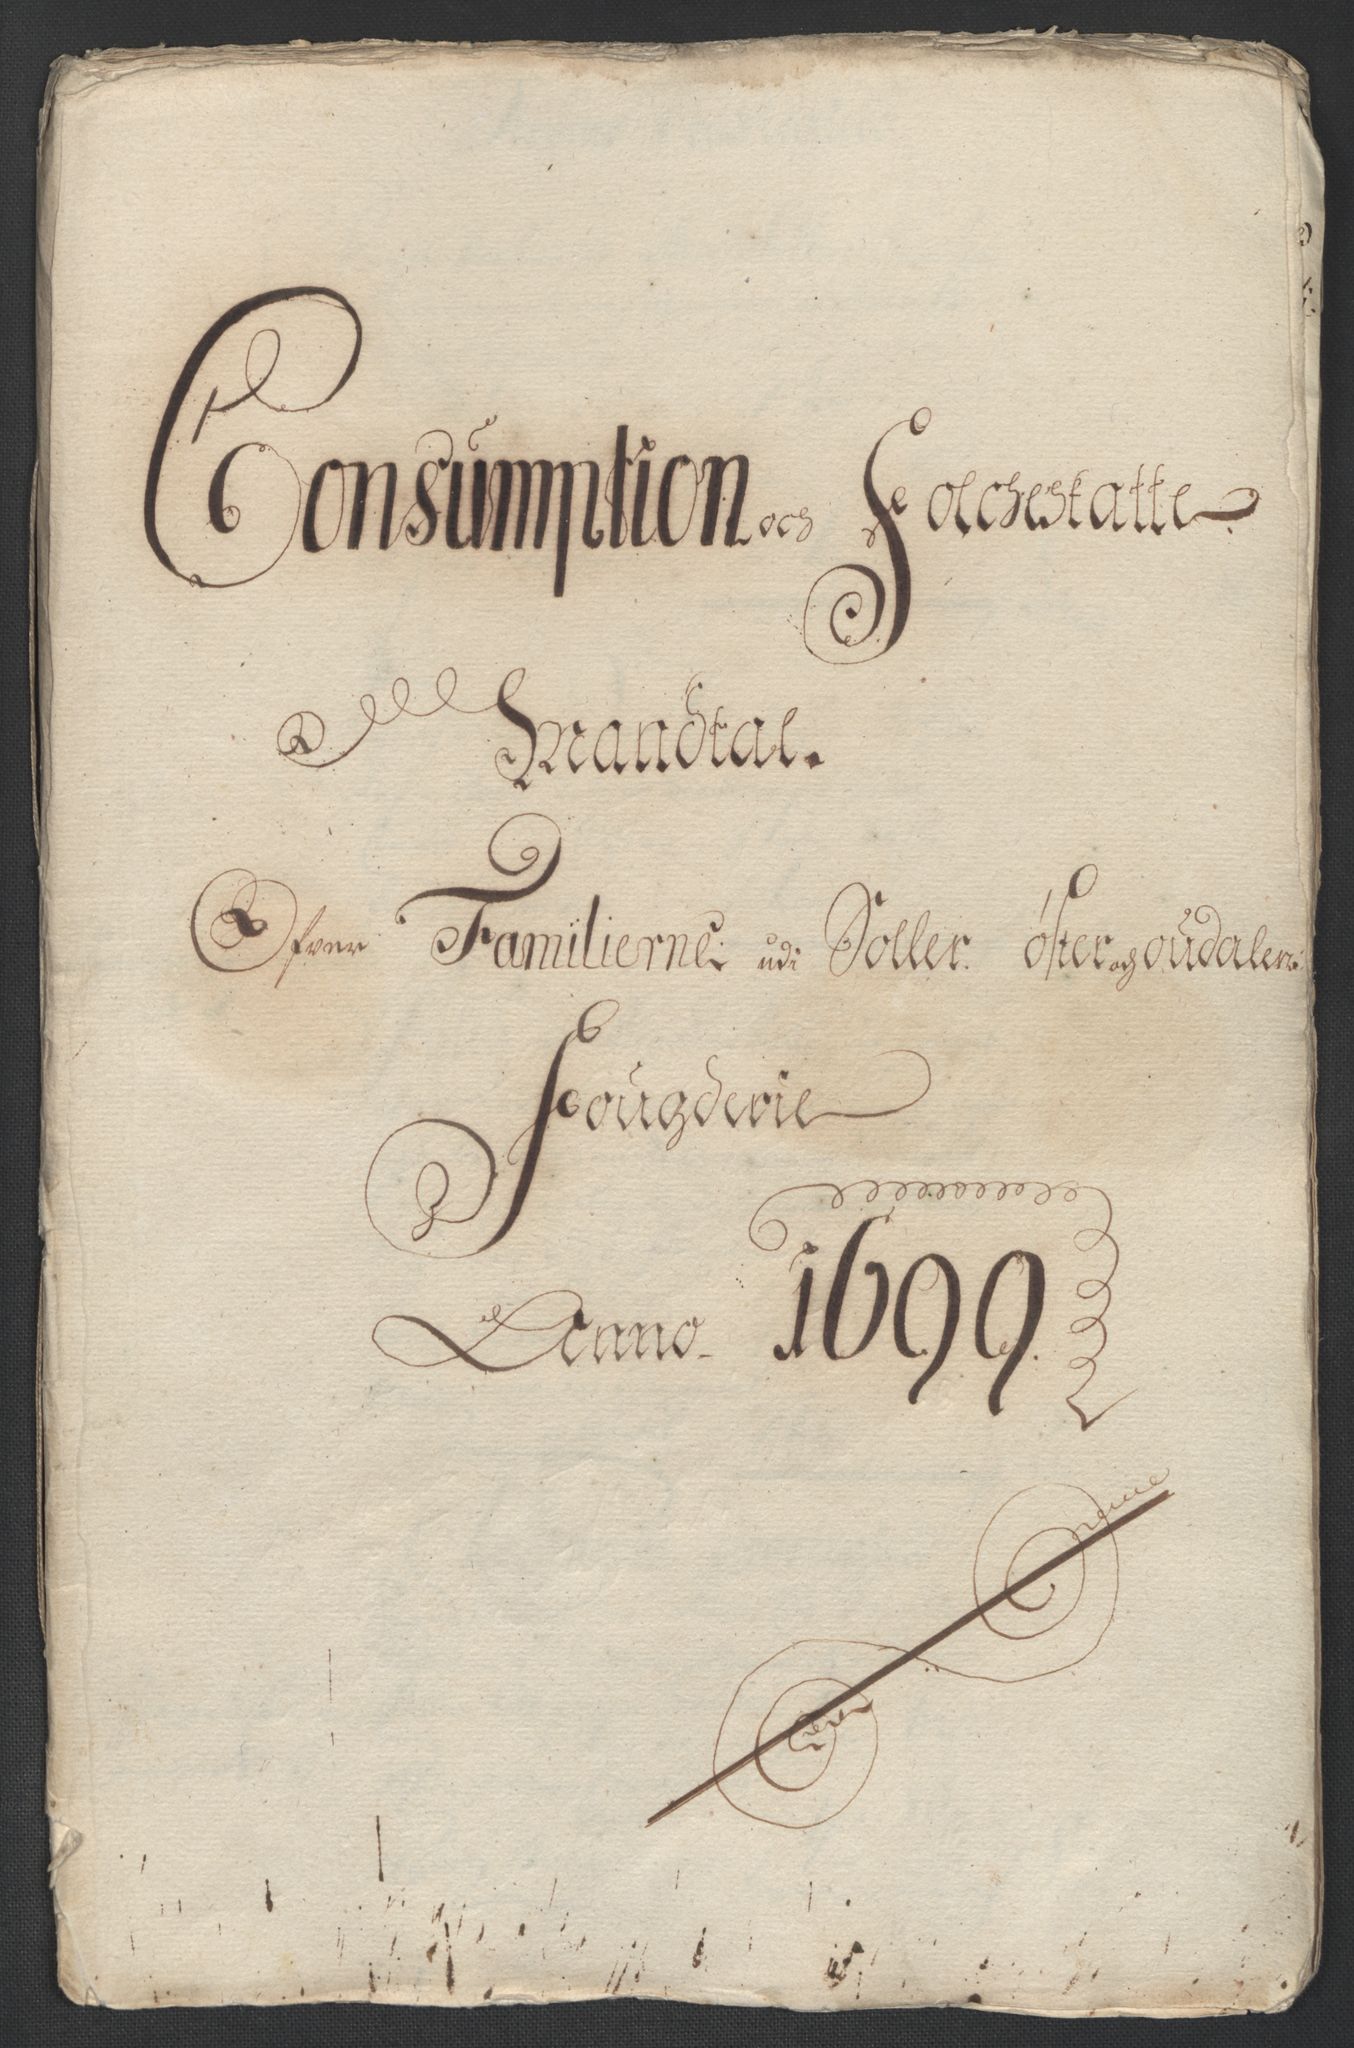 Consumption och Folchestatte
Mandtal.
Ofver Familierne udi Soller Øster og oudalens
Fougderie
Anno 1699